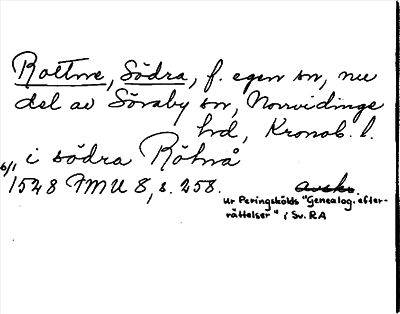 Rottne, Södra, f. egen sn, nu
del av Söraby sn, Norrvidinge
hrd, Kronob. l.
i södra Röhrå
6/1 1528 FMU 8, s. 258. avskr.
Ur Peringskölds "Genealog. efter-
rättelser" i Sv. RA